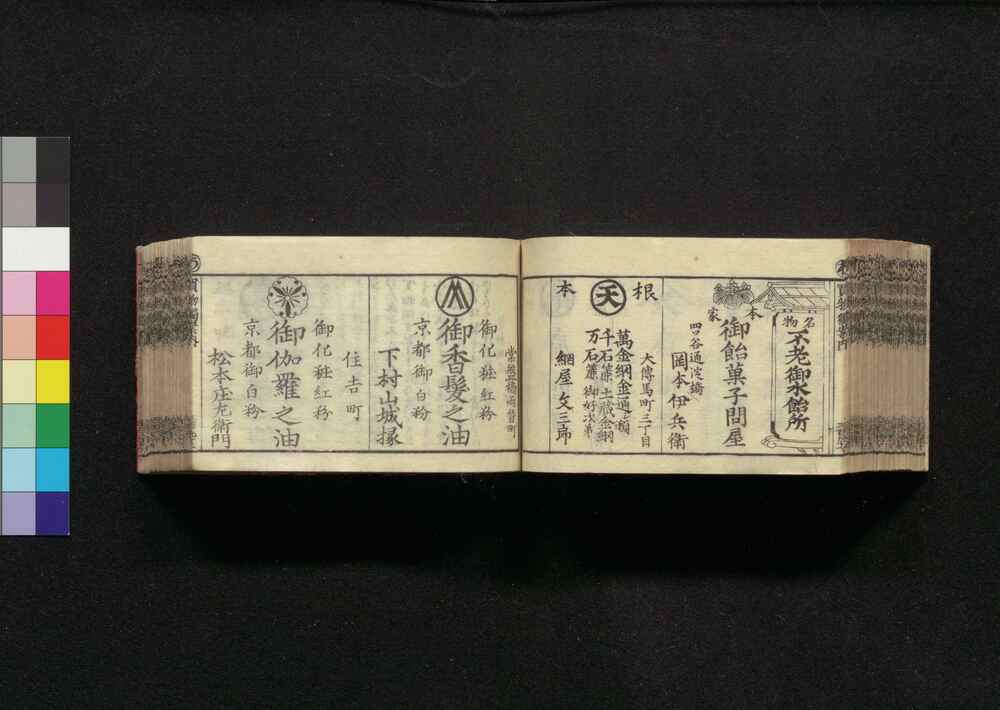 名物
不老御水飴所
本家
御飴菓子問屋
四谷通鮫ヶ橋
岡本伊兵衛
根本
天
大傳馬町三丁目
萬金網金通し類
千石簾土蔵金網
万石簾御好次第
網屋文三郎
常盤橋両替町
御化粧紅粉
御香髪之油
京都御白粉
下村山城掾
住吉町
御化粧紅粉
御伽羅之油
京都御白粉
松本庄左衛門